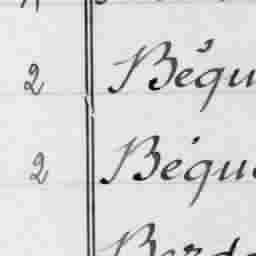 2 Béqu
2 Béqu